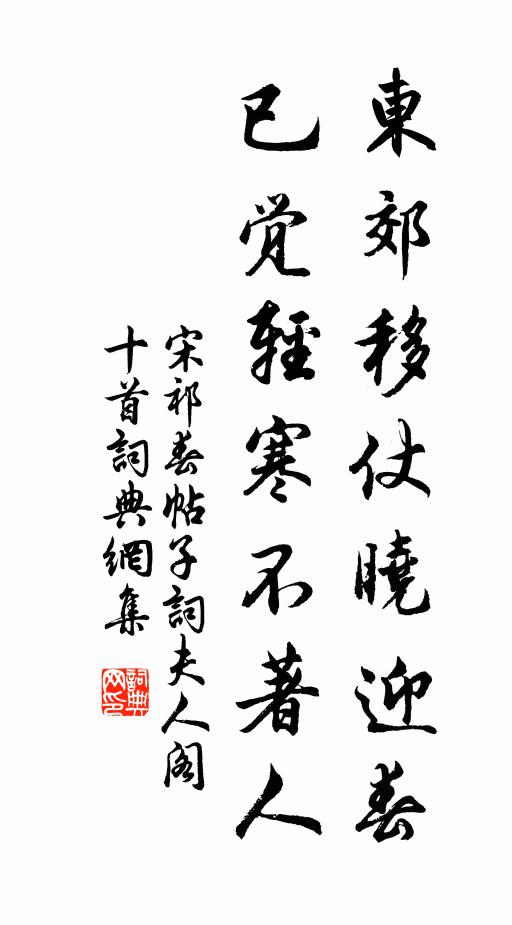 東郊移仗曉迎春
已覺輕寒不著人
宋祁春帖子詞夫人阁
十首詞典網集
詞典網印